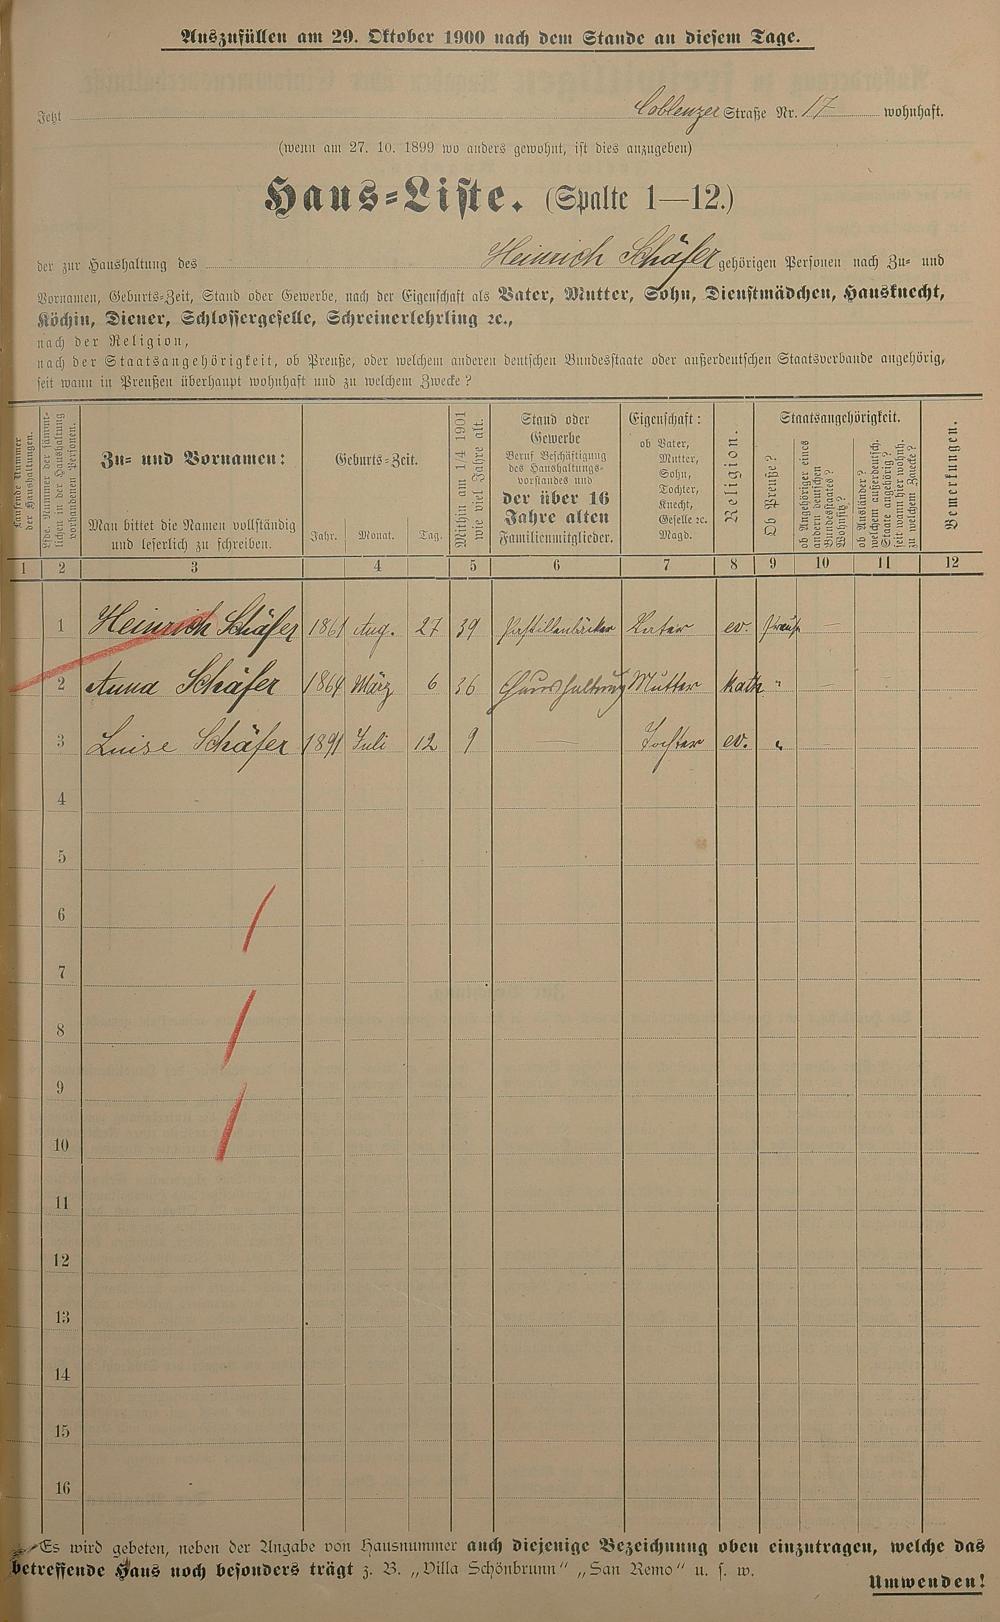 Auszufüllen am 29. Oktober 1900 nach dem Stande an diesem Tage.
Jetzt Coblenzer Straße Nr. 17 wohnhaft.
(wenn am 27. 10. 1899 wo anders gewohnt, ist dies anzugeben)
Haus-Liste. (Spalte 1—12.)
der zur Haushaltung des Heinrich Schäfer gehörigen Personen nach Zu- und
Vornamen, Geburts-Zeit, Stand oder Gewerbe, nach der Eigenschaft als Vater, Mutter, Sohn, Dienstmädchen, Hausknecht,
Köchin, Diener, Schlossergeselle, Schreinerlehrling ꝛc.,
nach der Religion,
nach der Staatsangehörigkeit, ob Preuße, oder welchem anderen deutschen Bundesstaate oder außerdeutschen Staatsverbande angehörig,
seit wann in Preußen überhaupt wohnhaft und zu welchem Zwecke?
Laufende Nummer
der Haushaltungen.
Lfde. Nummer der sämmt-
lichen in der Haushaltung
vorhandenen Personen.
Zu- und Vornamen:
Man bittet die Namen vollständig
und leserlich zu schreiben.
Geburts-Zeit.
Jahr. Monat. Tag.
Mithin am 1/4 1901
wie viel Jahre alt.
Stand oder
Gewerbe
Beruf Beschäftigung
des Haushaltungs-
vorstandes und
der über 16
Jahre alten
Familienmitglieder.
Eigenschaft:
ob Vater,
Mutter,
Sohn,
Tochter,
Knecht,
Geselle ꝛc.
Magd.
Religion.
Staatsangehörigkeit.
Ob Preuße?
ob Angehöriger eines
andern deutschen
Bundesstaates?
Wohnsitz?
ob Ausländer?
welchem außerdeutsch.
Staate angehörig?
seit wann hier wohnh.
zu welchem Zwecke?
Bemerkungen.
1 2 3 4 5 6 7 8 9 10 11 12
1 Heinrich Schäfer 1861 Aug. 27 39 Pastillenbäcker Vater ev. Preuße —
2 Anna Schäfer 1864 März 6 36 Haushaltung Mutter kath "
3 Luise Schäfer 1891 Juli 12 9 — Tochter ev. "
4
5
6
7
8
9
10
11
12
13
14
15
16
Es wird gebeten, neben der Angabe von Hausnummer auch diejenige Bezeichnung oben einzutragen, welche das
betreffende Haus noch besonders trägt z. B. „Villa Schönbrunn" „San Remo" u. s. w.
Umwenden!